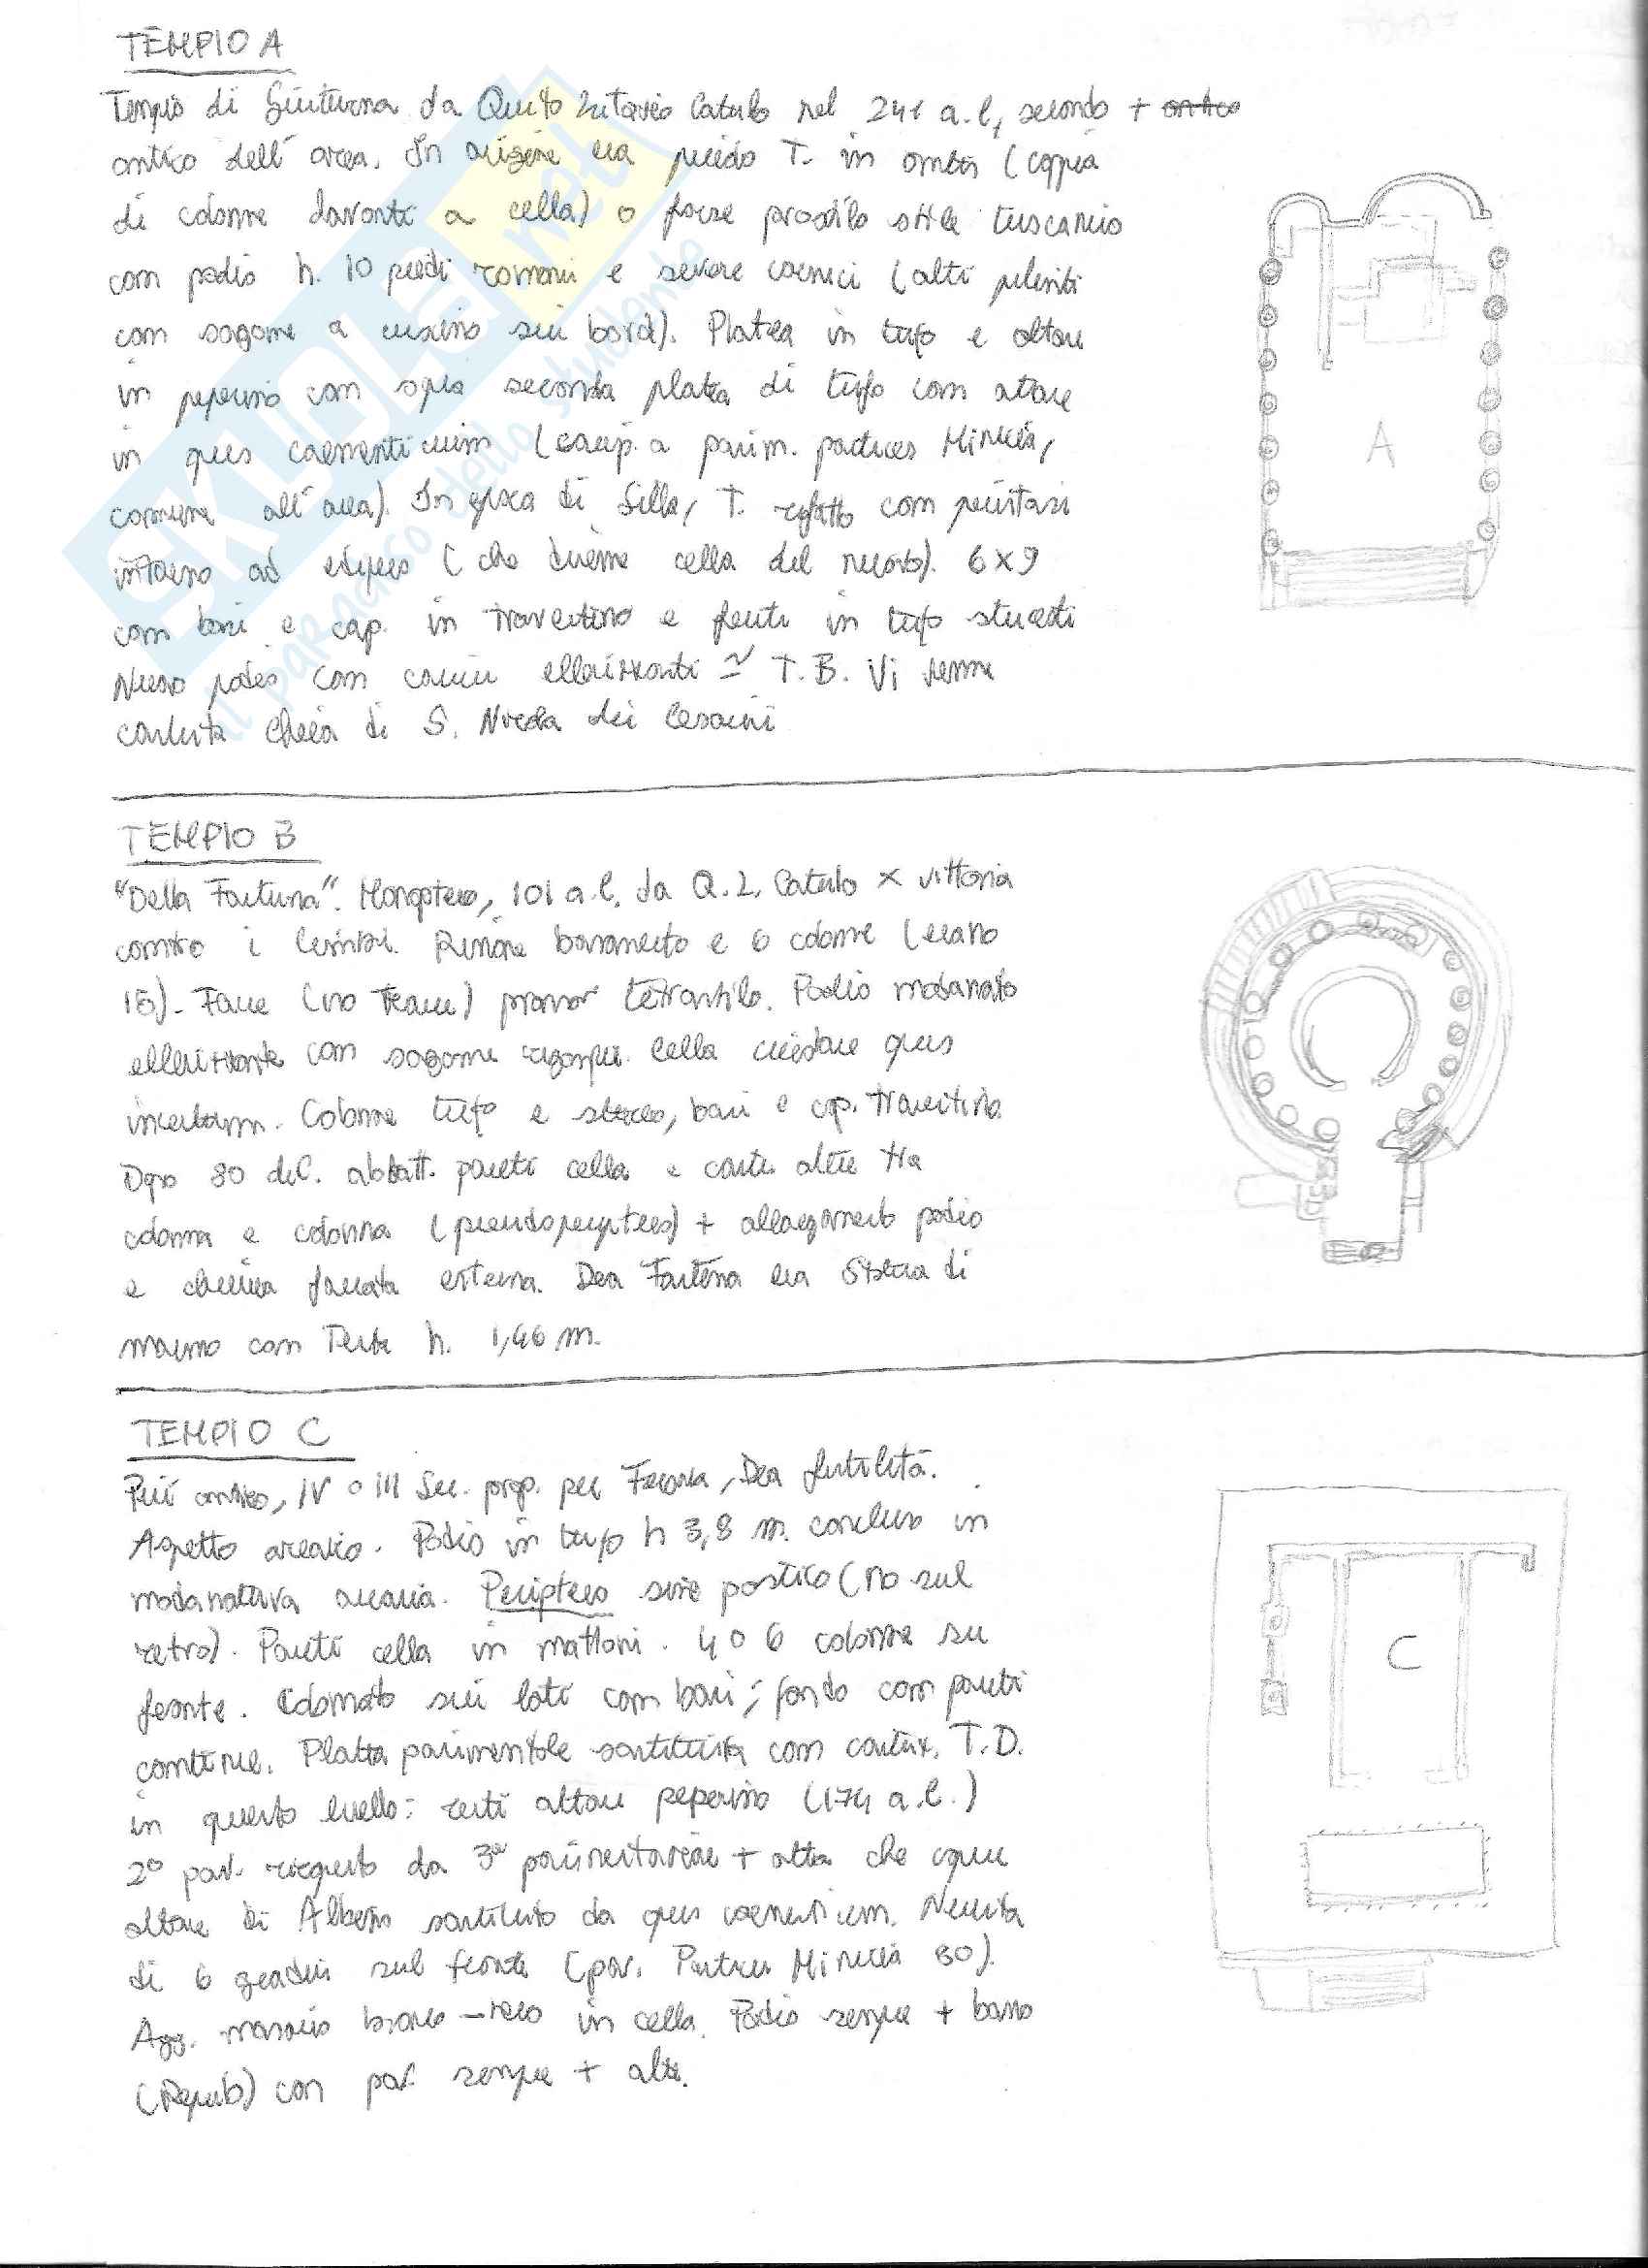 TEMPIO A
Tempio di Giuturna da Quinto Lutazio Catulo nel 241 a.C, secondo + antico
antico dell'area. In origine era piccolo T. in antis (coppia
di colonne davanti a cella) o forse prostilo stile tuscanico
con podio h. 10 piedi romani e severe cornici (alti plinti
con sagome a cuscino sui bordi). Platea in tufo e altare
in peperino con sopra seconda platea di tufo con altare
in opus caementicium (corrisp. a pavim. porticus Minucia,
comune all'area). In epoca di Silla, T. rifatto con peristasi
intorno ad edificio (che diviene cella del nuovo). 6x9
con basi e cap. in travertino e fusti in tufo stuccati
Nuovo podio con cornici ellenizzanti ≃ T. B. Vi venne
costruita chiesa di S. Nicola dei Cesarini
TEMPIO B
"Della Fortuna". Monoptero, 101 a.C. da Q. L. Catulo x vittoria
contro i Cimbri. Rimane basamento e 6 colonne (erano
18). Fane (no Teatri) pronao tetrastilo. Podio modanato
ellenizzante con sagome rigonfie. Cella circolare opus
incertum. Colonne tufo e stucco, basi e cap. travertino.
Dopo 80 d.C. abbatt. pareti cella e costr. altre tra
colonna e colonna (pseudoperiptero) + allargamento podio
e chiusa facciata esterna. Dea Fortuna era Statua di
marmo con Testa h. 1,46 m.
TEMPIO C
Più antico, IV o III Sec. prop. per Feronia, Dea fertilità.
Aspetto arcaico. Podio in tufo h 3,8 m. concluso in
modanatura arcaica. Periptero sine postico (no sul
retro). Pareti cella in mattoni. 4 o 6 colonne su
fronte. Colonnato sui lati con basi; fondo con pareti
continue. Platea pavimentale sostituita con costruz. T.D.
in questo livello: resti altare peperino (174 a.C.)
2° pav. ricoperto da 3ª pavimentazione + alta che copre
altare di Albino sostituito da opus caementicium. Nascita
di 6 gradini sul fronte (pav. Porticus Minucia 80).
Agg. mosaico bianco-nero in cella. Podio sempre + basso
(Repub) con pav. sempre + alte.
A
C
SKUOLA.net
il paradiso dello studente